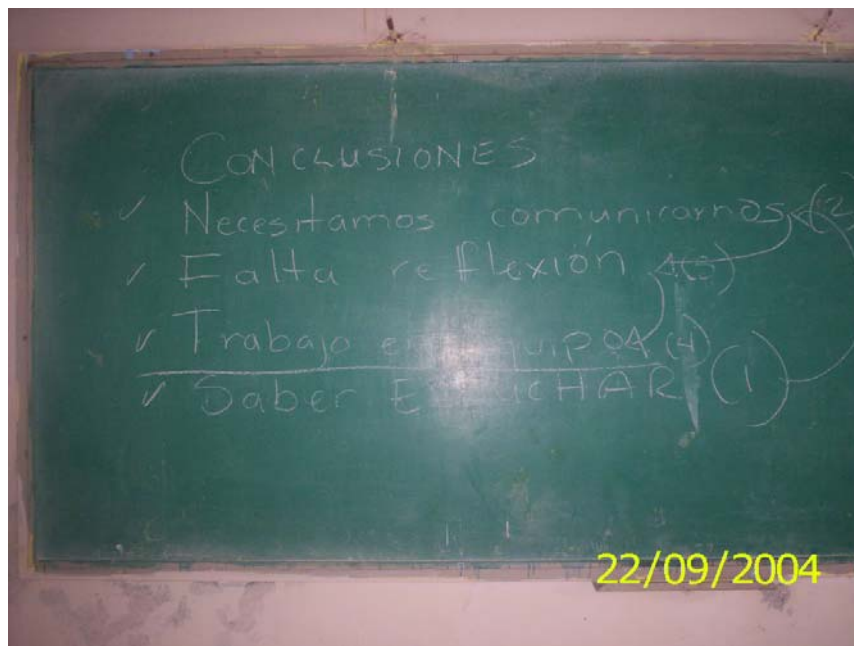 CONCLUSIONES
✓ Necesitamos comunicarnos (2)
✓ Falta reflexión (3)
✓ Trabajo en equipo (4)
✓ Saber ESCUCHAR (1)
22/09/2004